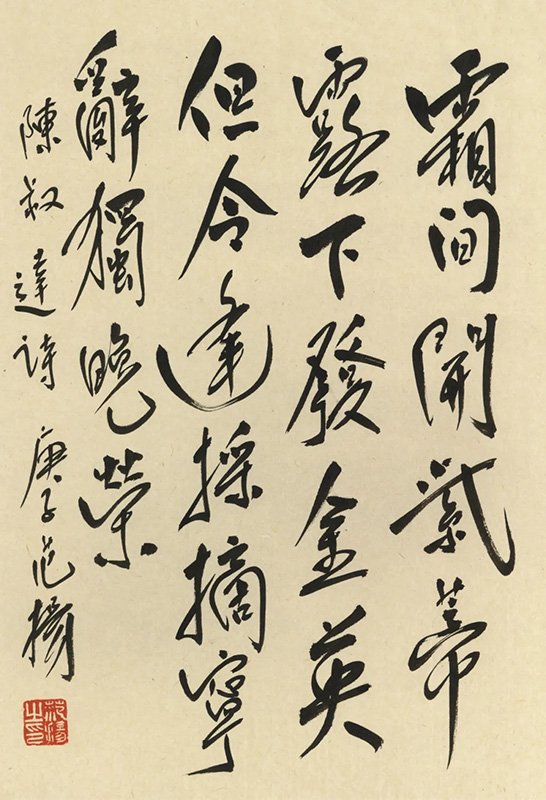 霜間開紫蒂
露下發金英
但令逢採摘寧
辭獨晚榮
陳叔達詩 庚子范揚
范揚之印